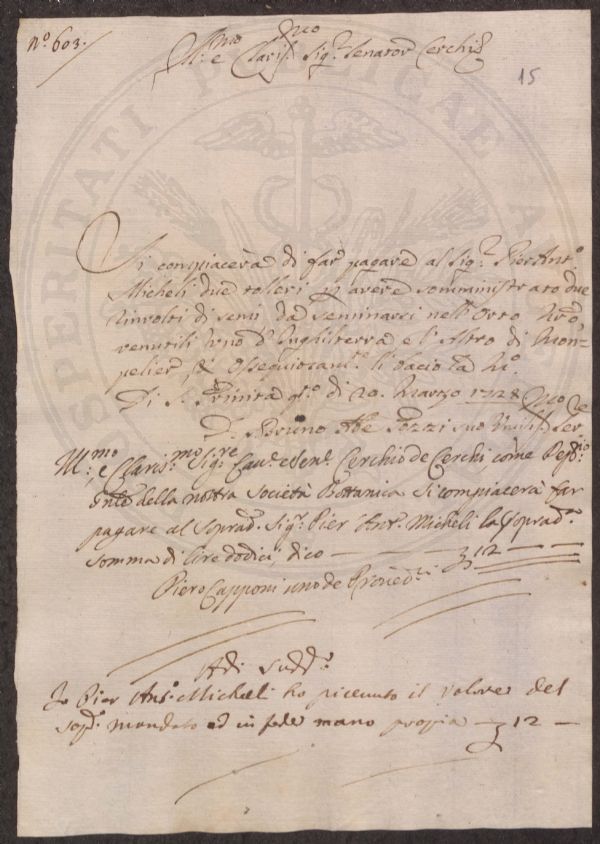 N.º 603.
Ill.mo e Claris.mo Sig.r Senator Cerchi
15
Si compiacerà di far pagare al Sig.r Pier Ant.º
Micheli due tolleri p avere somministrato due
involti di semi da seminarsi nell' Orto Nro,
venutili uno d' Inghilterra e l' Altro di Mon-
pelier, & Ossequiosam.te li bacio la M.º
Di S. Trinita q.to dì 20. Marzo 1728
D. Bruno Ab.e Tozzi suo Umilis.mo Ser.re
Ill.mo e Claris.mo Sig.re Cau.re e Sen.re Cerchio de Cerchi come Presi-
dnte della nostra Società Bottanica si compiacerà far
pagare al Soprad.º Sig.r Pier Ant.º Micheli la Soprad.ª
somma di lire dodici, dico — 12 —
Piero Capponi uno de Proued.ri
Adi sudd.º
Io Pier Ant.º Micheli ho riceuuto il valore del
sop.º mandato ed in fede mano propia — 12 —
ASPERITATI PUBLICAE